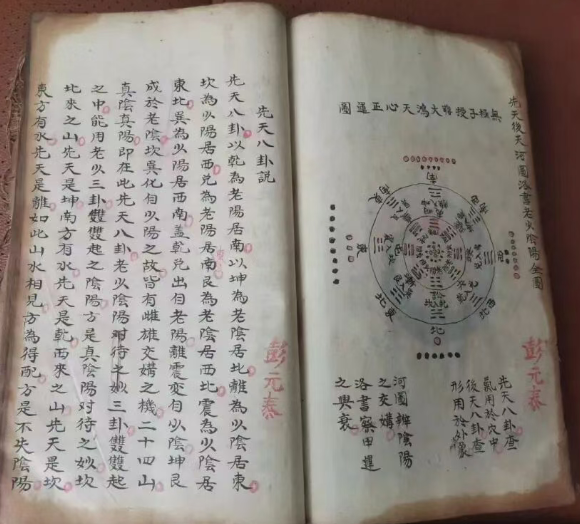 先天後天河圖洛書老少陰陽全圖
無極子授蔣大鴻天心正運圖
南
北
東北
西北
彭元泰
先天八卦查
氣用於穴中
後天八卦查
形用於外象
河圖辨陰陽
之交媾
洛書察甲運
之興衰
先天八卦說
彭元泰
先天八卦以乾為老陽居南以坤為老陰居北離為少陰居東
坎為少陽居西兌為老陽居南艮為老陰居西北震為少陰居
東北巽為少陽居西南蓋乾兌出自老陽離震變自少陰坤艮
成於老陰坎巽化自少陽之故皆有雌雄交媾之機二十四山
真陰真陽即在此先天八卦老少陰陽對待之妙三卦雙雙起
之中能用老少三卦雙雙起之陰陽方是真陰陽對待之妙坎
北來之山先天是坤南方有水先天是乾西來之山先天是坎
東方有水先天是離如此山水相見方為得配方是不失陰陽